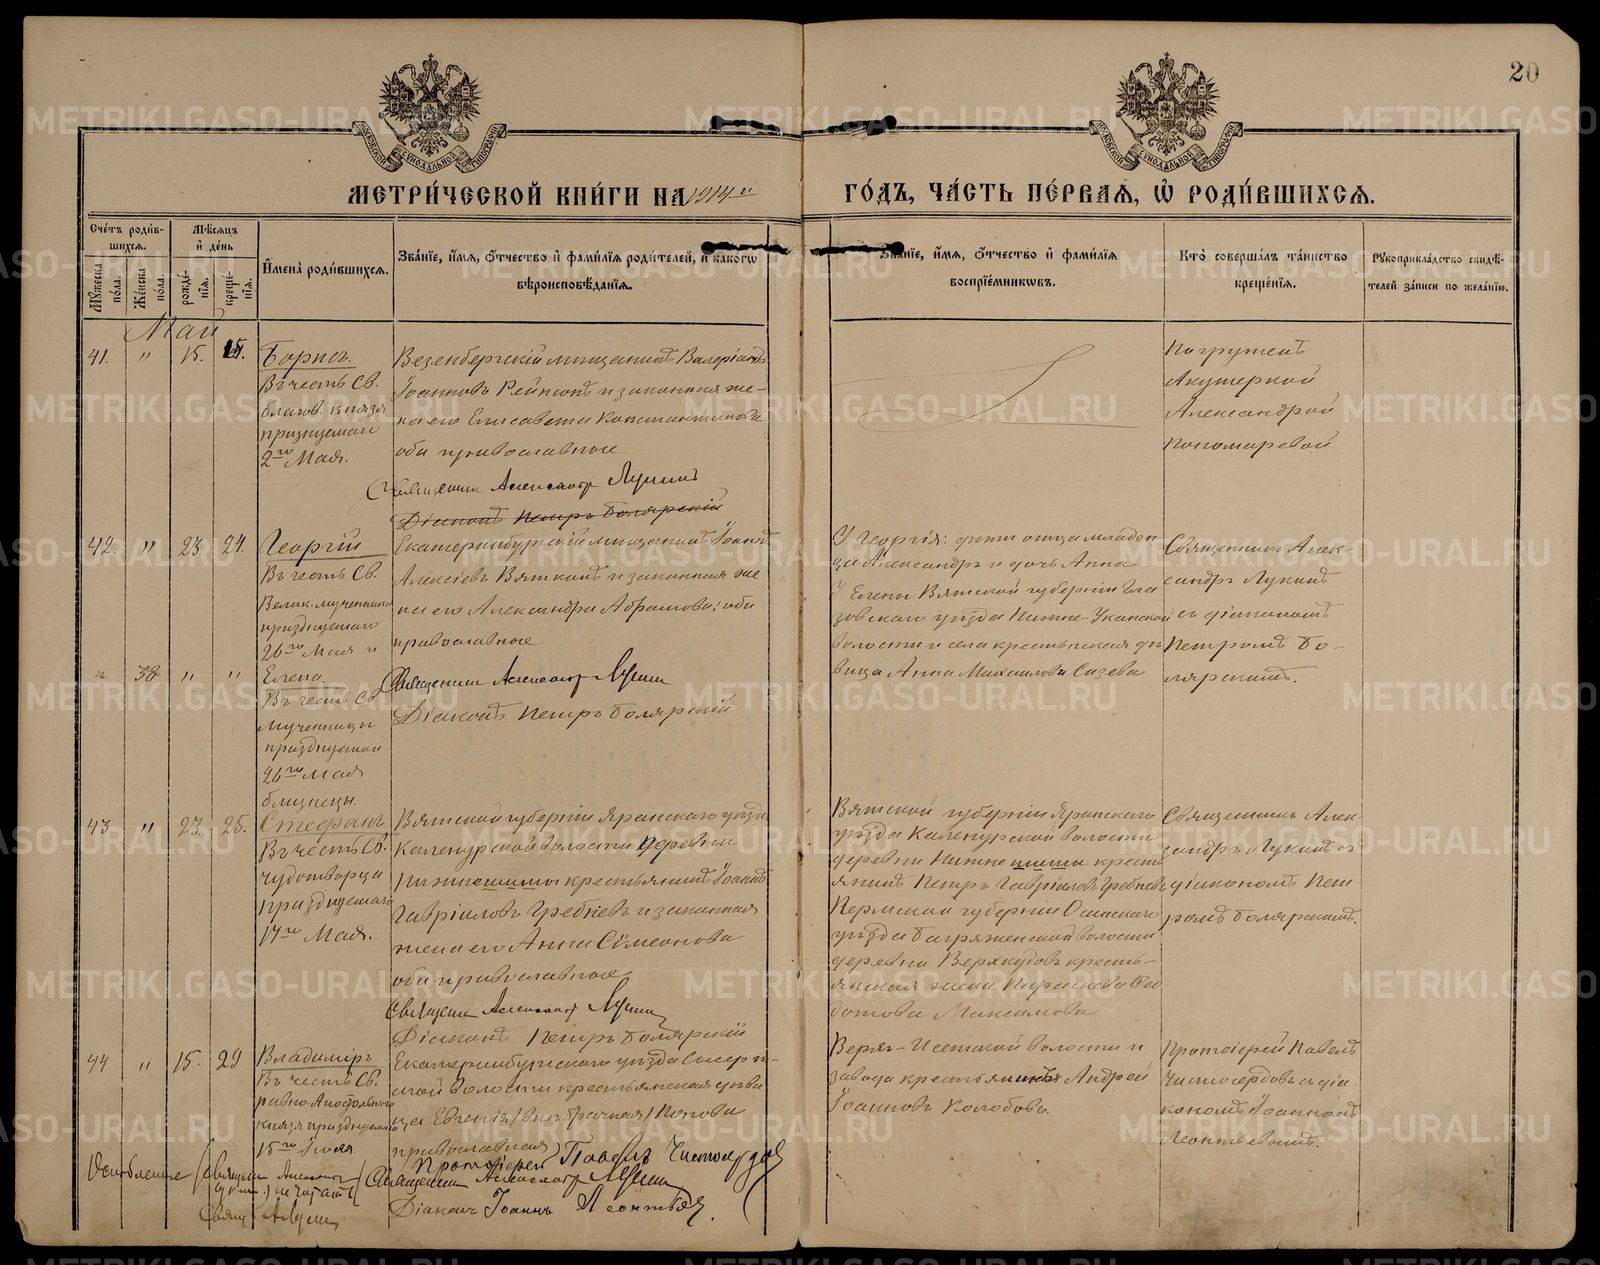 20
МЕТРИ́ЧЕСКОЙ КНИ́ГИ НА 1914 й
ГО́ДЪ, ЧА́СТЬ ПЕ́РВАЯ, Ѽ РОДИ́ВШИХСѦ.
Сче́тъ роди́в-
шихсѧ.
Мꙋ́жеска по́ла.
Же́нска по́ла.
Мѣ́сѧцъ и҆ де́нь
рожде́-нїѧ.
креще́-нїѧ.
И҆мена̀ роди́вшихсѧ.
Зва́нїе, и҆́мѧ, ѻ҆́тчество и҆ фами́лїѧ роди́телей, и҆ како́гѡ
вѣроисповѣ́данїѧ.
Зва́нїе, и҆́мѧ, ѻ҆́тчество и҆ фами́лїѧ
воспрїе́мникѡвъ.
Кто̀ соверша́лъ та́инство
креще́нїѧ.
Рꙋкоприкла́дство свидѣ́-
телей за́писи по жела́нїю.
Май
41. " 15. 15.
Борисъ.
Въ честь Св.
благов. князя
празднуемаго
2го Мая.
Везенбергскій мѣщанинъ Валеріанъ
Іоанновъ и законная же-
на его Елисавета Константинова
оба православные
Священник Александр Лукинъ
Діаконъ Петръ Боярскій
Погруженъ
Акушеркой
Александрой
Пономаревой
42. " 23. 24.
Георгій
Въ честь Св.
Велик. мученика
празднуемаго
26го Мая и
Екатеринбургскій мѣщанинъ Іоаннъ
Алексіевъ Вяткинъ и законная же
на его Александра Абрамова; оба
православные
Священник Александр Лукин
Діаконъ Петръ Болярскій
У Георгія: дѣти отца младен
ца Александръ и дочь Анна
У Елены Вятской губерніи Гла
зовскаго уѣзда Нижне-Уканской
волости и села крестьянская дѣ
вица Анна Михаилова Сазева
Священникъ Алек-
сандръ Лукинъ
съ діакономъ
Петромъ Бо-
лярскимъ.
" 38 " "
Елена.
Въ честь Св.
Мученицы
празднуемой
26го Мая
близнецы.
43 " 23. 25.
Стефанъ
Въ честь Св.
чудотворца
празднуемаго
17го Мая.
Вятской губерніи Яранскаго уѣзда
волости деревни
крестьянинъ Іоаннъ
Гавріиловъ Гребневъ и законная
жена его Анна Сѵмеонова
оба православные
Священ Александр Лукин
Діаконъ Петръ Болярскій
Вятской губерніи Яранскаго
уѣзда волости
деревни кресть
янинъ Петръ Гавріиловъ Гребневъ
Пермской губерніи Осинскаго
уѣзда волости
деревни кресть-
янская жена
Максимова
Священникъ Алек
сандръ Лукинъ съ
діакономъ Пет
ромъ Болярскимъ.
44 " 15. 29
Владимiръ
Въ честь Св.
равно-Апостольнаго
князя празднуемаго
15го Іюля
Екатеринбургскаго уѣзда Сысерт-
ской волости крестьянская дѣви
ца Евгенія (внѣбрачная) Попова
православная
Протоіерей Павелъ Чистосердов
Священник Александр Лукин
Діакон Іоаннъ Леонтьев.
Верхъ-Исетской волости и
завода крестьянинъ Андрей
Іоанновъ Колобовъ.
Протоіерей Павелъ
Чистосердовъ съ діа
кономъ Іоанномъ
Леонтьевымъ.
не читать
Свящ. А Лукин